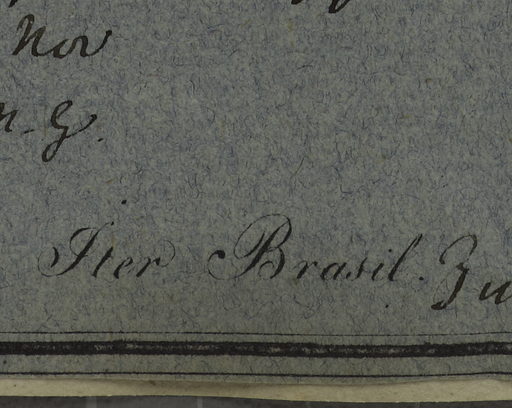 Nov
M. G.
Iter Brasil. Zu